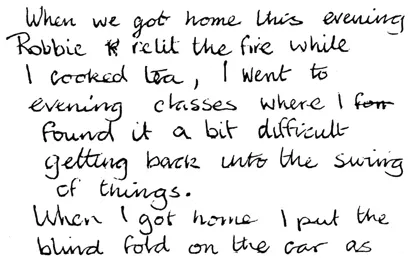 When we got home this evening
Robbie relit the fire while
I cooked tea, I went to
evening classes where I
found it a bit difficult
getting back into the swing
of things.
When I got home I put the
blind fold on the car as